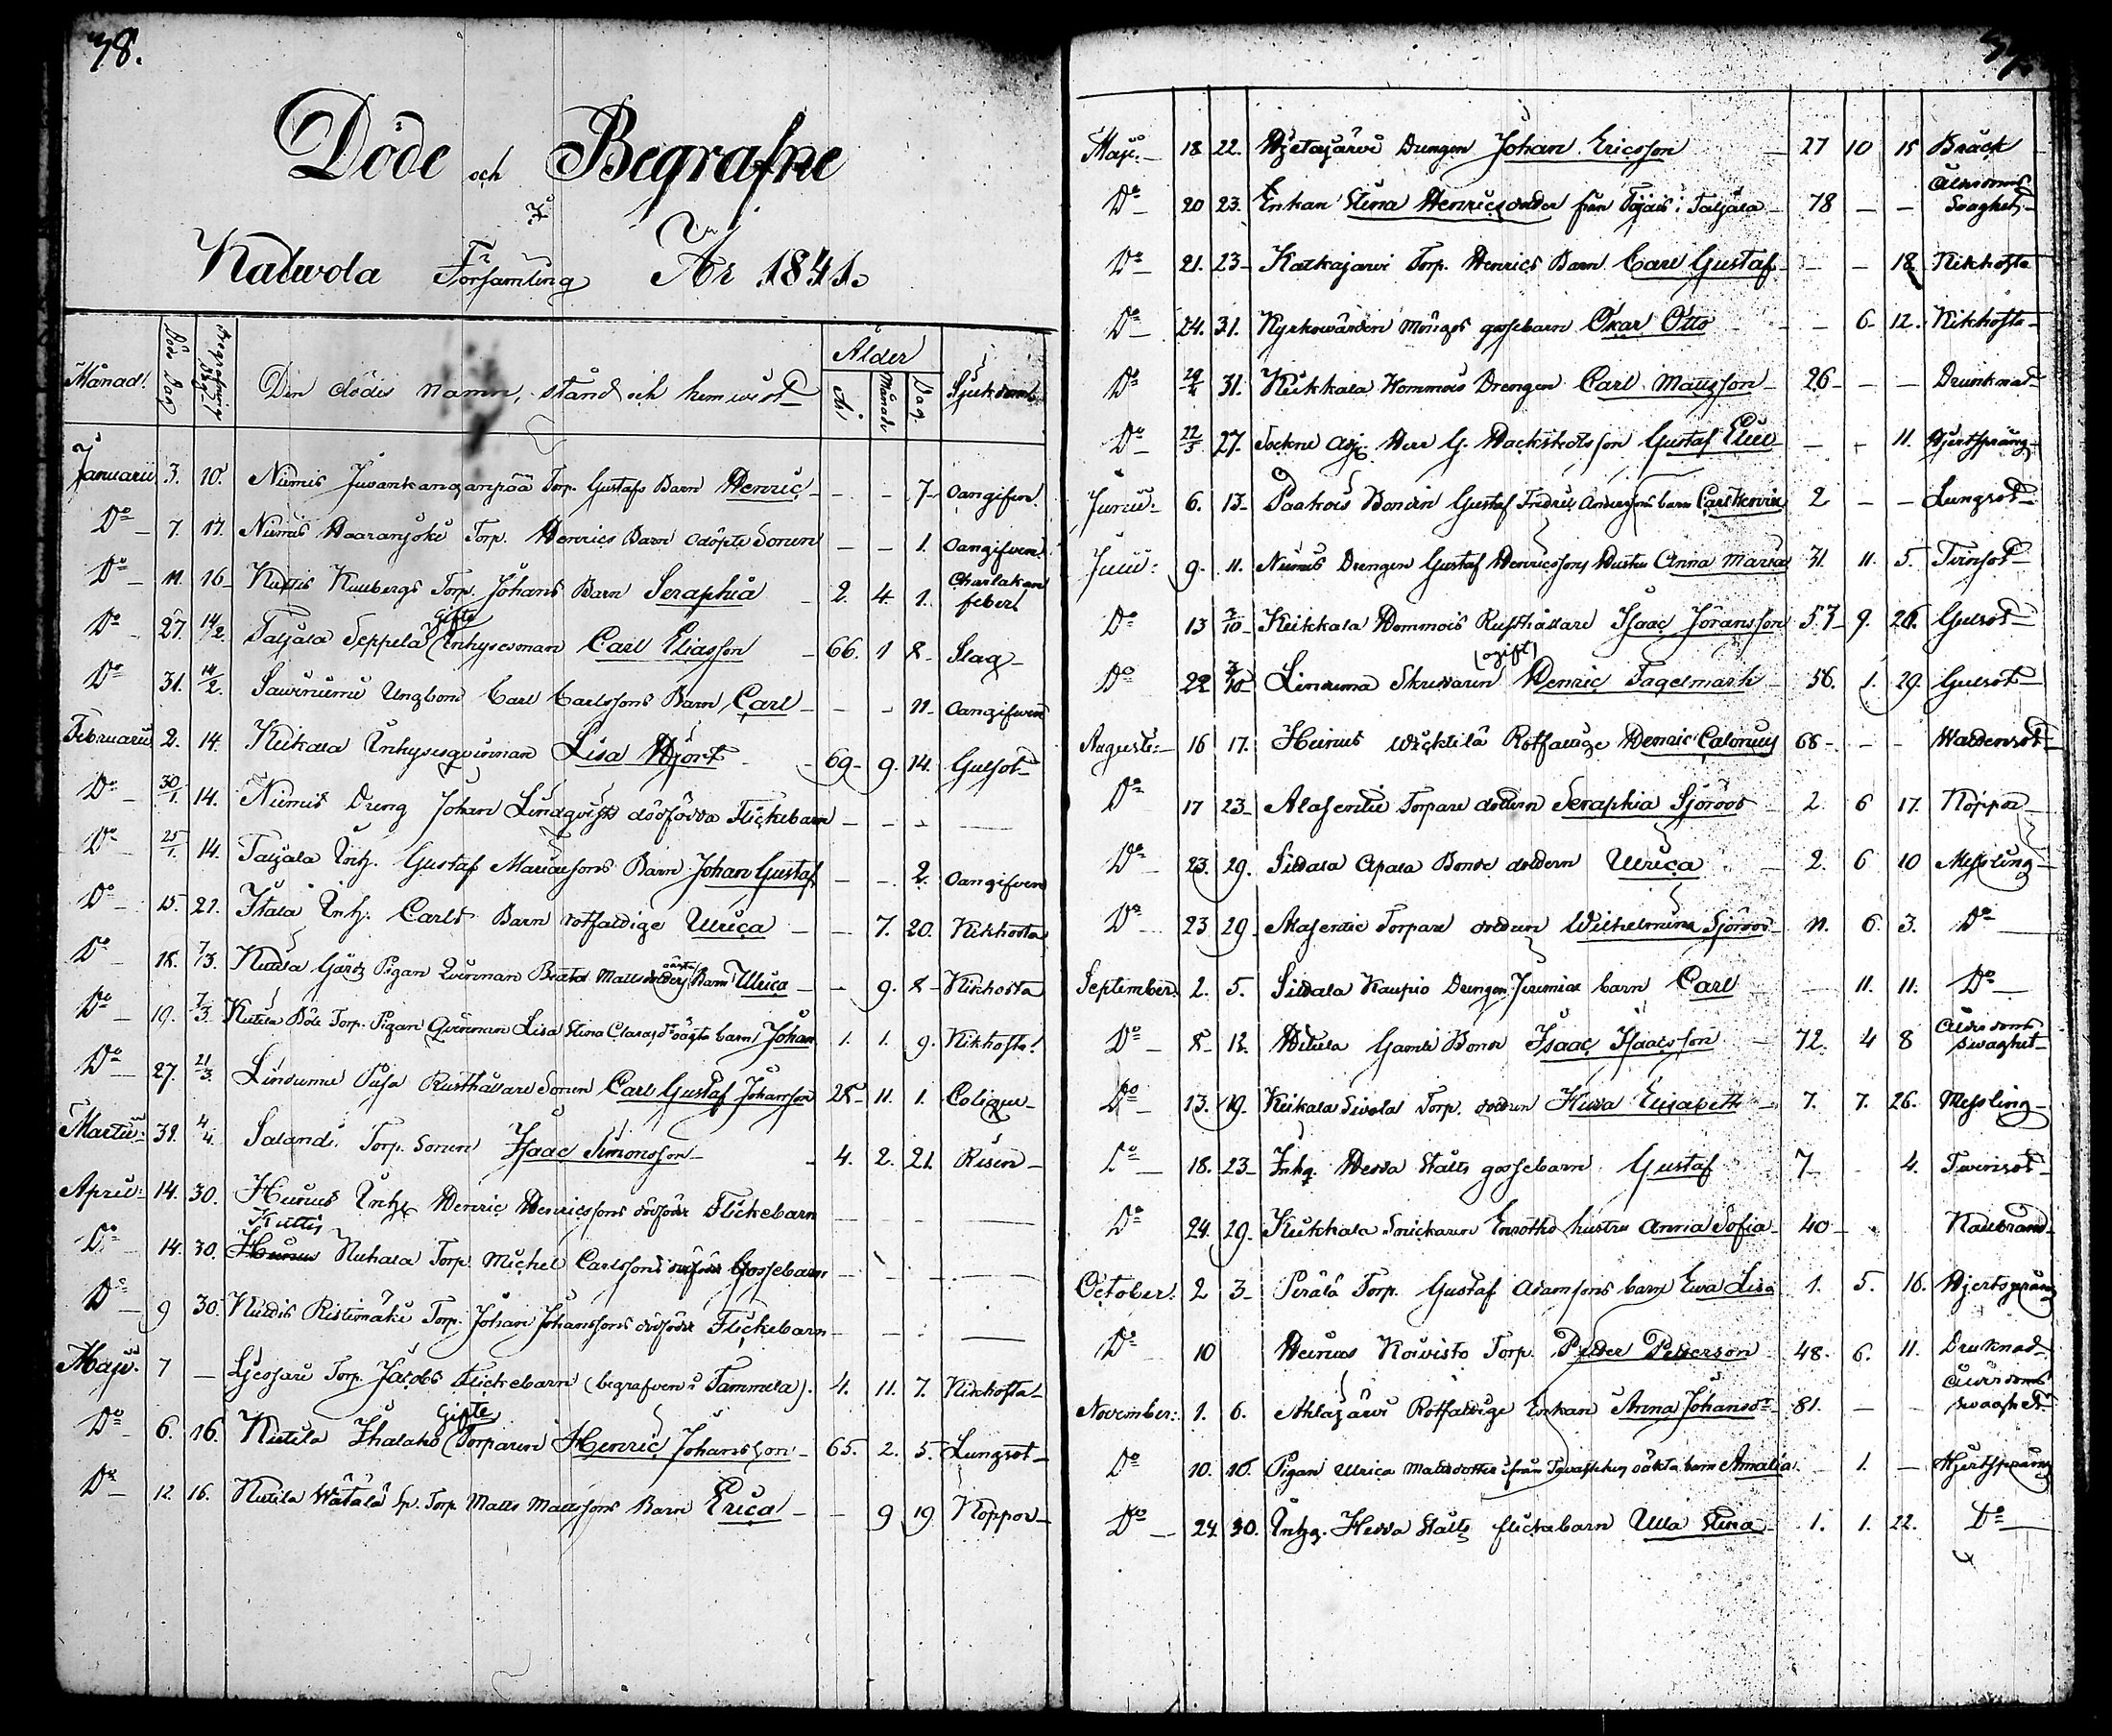 78.
Döde och Begrafne
i
Kalwola Församling År 1841.
Månad. Döds Dag Begrafnings Dag Den dödes namn, stånd och hemwist Ålder År Månad Dag. Sjukdom
Januarii 3. 10. Niemis Juvankanganpää Torp. Gustafs Barn Henric - - 7 Oangifven.
Do 7. 17. Niemis Haaranjoki Torp. Henrics Barn odöpte Sonen - - 1. Oangifven.
Do 11. 16 Kuttis Torp. Johans Barn Seraphia 2. 4. 1. Charlakan feber.
Do 27. 14/2. Taljala Seppelä (Gifte Inhysesman Carl Eliasson 66. 1 8 Slag
Do 31. 14/2. Sauvniemi Ungbond Carl Carlssons Barn Carl - - 11 Oangifven
Februarii 2. 14. Keikala Inhysesqvinnan Lisa Hjort 69 9. 14. Gulsot
Do 30/1. 14. Niemis Dreng Johan Lindqvists dödfödda Flickebarn - - -
Do 25/1. 14. Taljala Inh. Gustaf Barn Johan Gustaf - - 2. Oangifven
Do 15. 21. Ittala Inh. Carls Barn rotfaldige Ulrica - 7. 20. Kikhosta
Do 18. 7/3. Gärds Pigan Qvinnan Beata Mattsdotters oäkta Barn Ulrica - 9. 8 Kikhosta
Do 19. 7/3. Kutila Böle Torp. Pigan Qvinnan Lisa Stina Clarasdr oägta barn Johan 1. 1. 9. Kikhosta.
Do 27. 21/3. Lindume Rusthållare Sonen Carl Gustaf Johansson 28 11. 1. Colique
Martii 31. 4/4. Saland. Torp. Sonen Isaac Simonsson 4. 2. 21. Risen
April: 14. 30. Heinus Inh. Henric Henricssons dödfödda Flickebarn - - -
Do 14. 30. Kuttis Heinus Nuhala Torp. Michel Carlssons dödfödda Gossebarn - - -
Do 9 30. Ristimäki Torp. Johan Johanssons dödfödda Flickebarn - - -
Maji 7 - Torp. Jacobs Flickebarn (begrafven i Tammela). 4. 11. 7. Kikhosta
Do 6. 16. Kutila Ihalaks (Gifte Torparen Henric Johansson 65. 2. 5. Lungsot
Do 12. 16. Kutila Wätälä Sp. Torp. Matts Mattssons Barn Erica - 9 19 Koppor
Maji 18 22. Hjetajärvi Drengen Johan Ericsson 27 10 15 Bråck
Do 20 23. Enkan Stina Henricsdotter från i Taljala 78 - - Ålderdoms Svaghet
Do 21. 23 Katkajärvi Torp. Henrics Barn Carl Gustaf - - 18. Kikhosta
Do 24. 31. Kyrkowärden gossebarn Oskar Otto - 6 12. Kikhosta
Do 31. Keikkala Hommois Drengen Carl Mattsson 26 - - Drunknad
Do 22/5 27. Sockne Adj. Herr G. Son Gustaf Eliel - - 11. Hjertsprång
Junii: 6. 13 Paakois Bonden Gustaf Fredric Anderssons barn Carl Henric 2 - - Lungsot
Julii: 9. 11. Niemis Drengen Gustaf Henricssons Hustru Anna Maria 31. 11. 5. Tvinsot
Do 13 Keikkala Hommois Rusthållare Isaac Göransson 57 9. 26. Gulsot
Do 22 Lindume Skreddaren (ogift) Henric Tagelmark 56. 1. 29. Gulsot
Augusti: 16 17. Heinus Rotfattige Henric Calonius 68 - - Wattensot
Do 17 23 Alasentie Torpare dottren Seraphia Sjöroos 2. 6 17. Koppor
Do 23. 29. Sittala Apala Bonde dottern Ulrica 2. 6 10 Messling
Do 23 29 Alasentie Torpare dottern Wilhelmina Sjöroos 11. 6. 3. Do
September. 2. 5. Sittala Kaupio Drengen Jeremias barn Carl - 11. 11. Do
Do 8 12. Gamle Bonden Isaac Isaacsson 72. 4 8 Ålderdoms svaghet
Do 13. 19. Keikala Sivola Torp. dottren Hedda Elisabeth 7. 7. 26. Messling
Do 18. 23 Inhq. Hedda Ståhls gossebarn Gustaf 7 - 4. Tvinsot
Do 24. 29. Keikkala Snickaren Enroths hustru Anna Sofia 40 Kallbrand
October. 2 3 Perälä Torp. Gustaf Adamsons barn Ewa Lisa 1. 5. 16. Hjertsprång
Do 10 Heinus Koivisto Torp. Petter Petterson 48. 6. 11. Druknad
November: 1. 6. Ahlajärvi Rotfattige Enkan Anna Johansdr 81. - - Ålderdoms svaghet
Do 10. 16. Pigan Ulrica Mattsdotter ifrån Tavastehus oäkta barn Amalia. - 1. - Hjertsprång
Do 24. 30. Inhq. Hedda Ståhls flickebarn Ulla Stina 1. 1. 22. Do